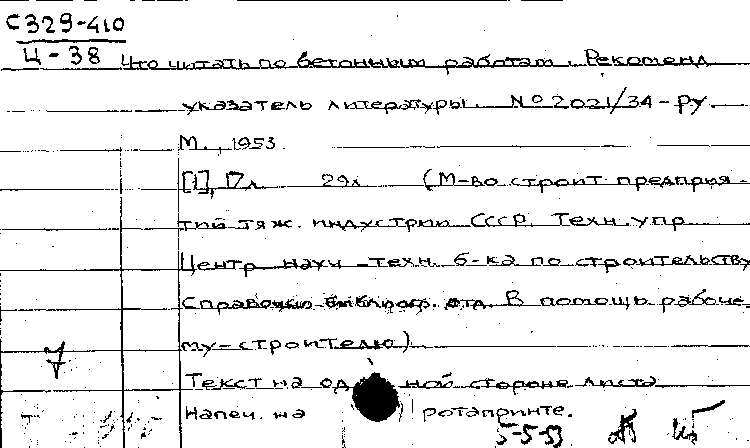 С329-410
Ц-38
Что читать по бетонным работам. Рекоменд
указатель литературы. № 2021/34-ру.
М., 1953.
[1], 17л. 29л (М-во строит предприя-
тий тяж. индустрии СССР. Техн. упр
Центр науч-техн. б-ка по строительству
Справочно-библиогр. отд. В помощь рабоче-
му-строителю)
7
Текст на од ной стороне листа
Напеч. на ротапринте.
5-5-53